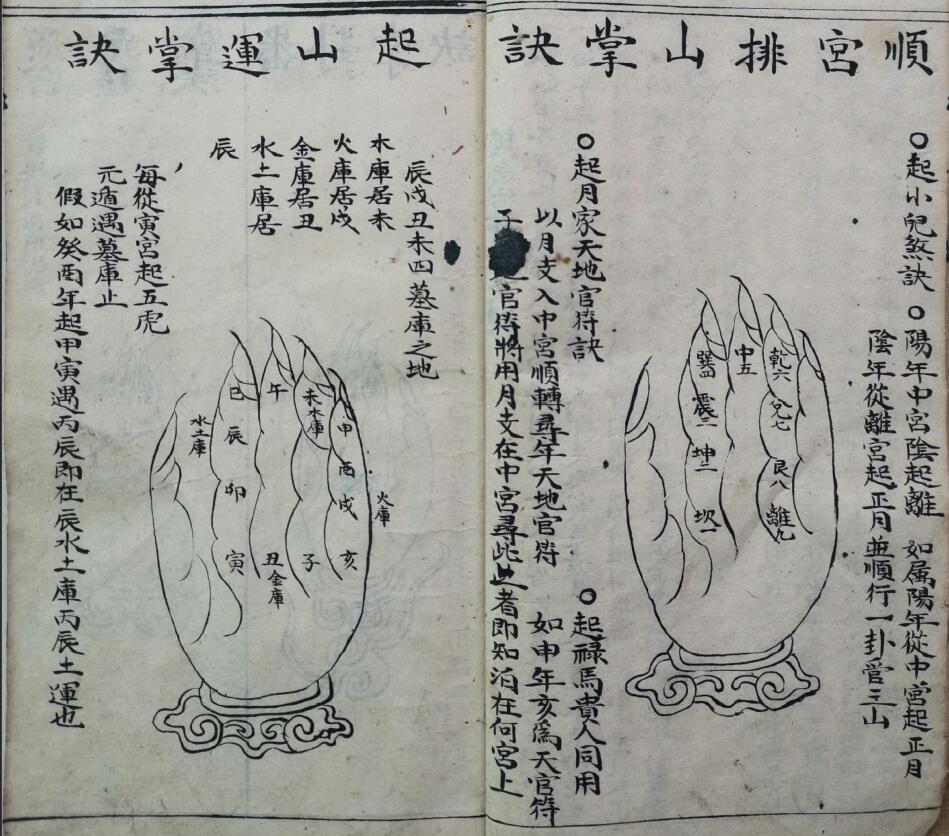 順宮排山掌訣
○起小兒煞訣
○陽年中宮陰起離 如屬陽年從中宮起正月
陰年從離宮起正月並順行一卦管三山
乾六
兌七
艮八
離九
中五
巽四
震三
坤二
坎一
○起月家天地官符訣
○起祿馬貴人同用
以月支入中宮順轉尋年天地官符 如申年亥為天官符
子
官符將用月支在中宮尋此
者即知泊在何宮上
起山運掌訣
辰戌丑未四墓庫之地
木庫居未
火庫居戌
金庫居丑
水土庫居
辰
每從寅宮起五虎
元遁遇墓庫止
假如癸酉年起甲寅遇丙辰即在辰水土庫丙辰土運也
申
酉
戌
亥
火庫
未木庫
子
午
丑金庫
巳
辰
卯
寅
水土庫